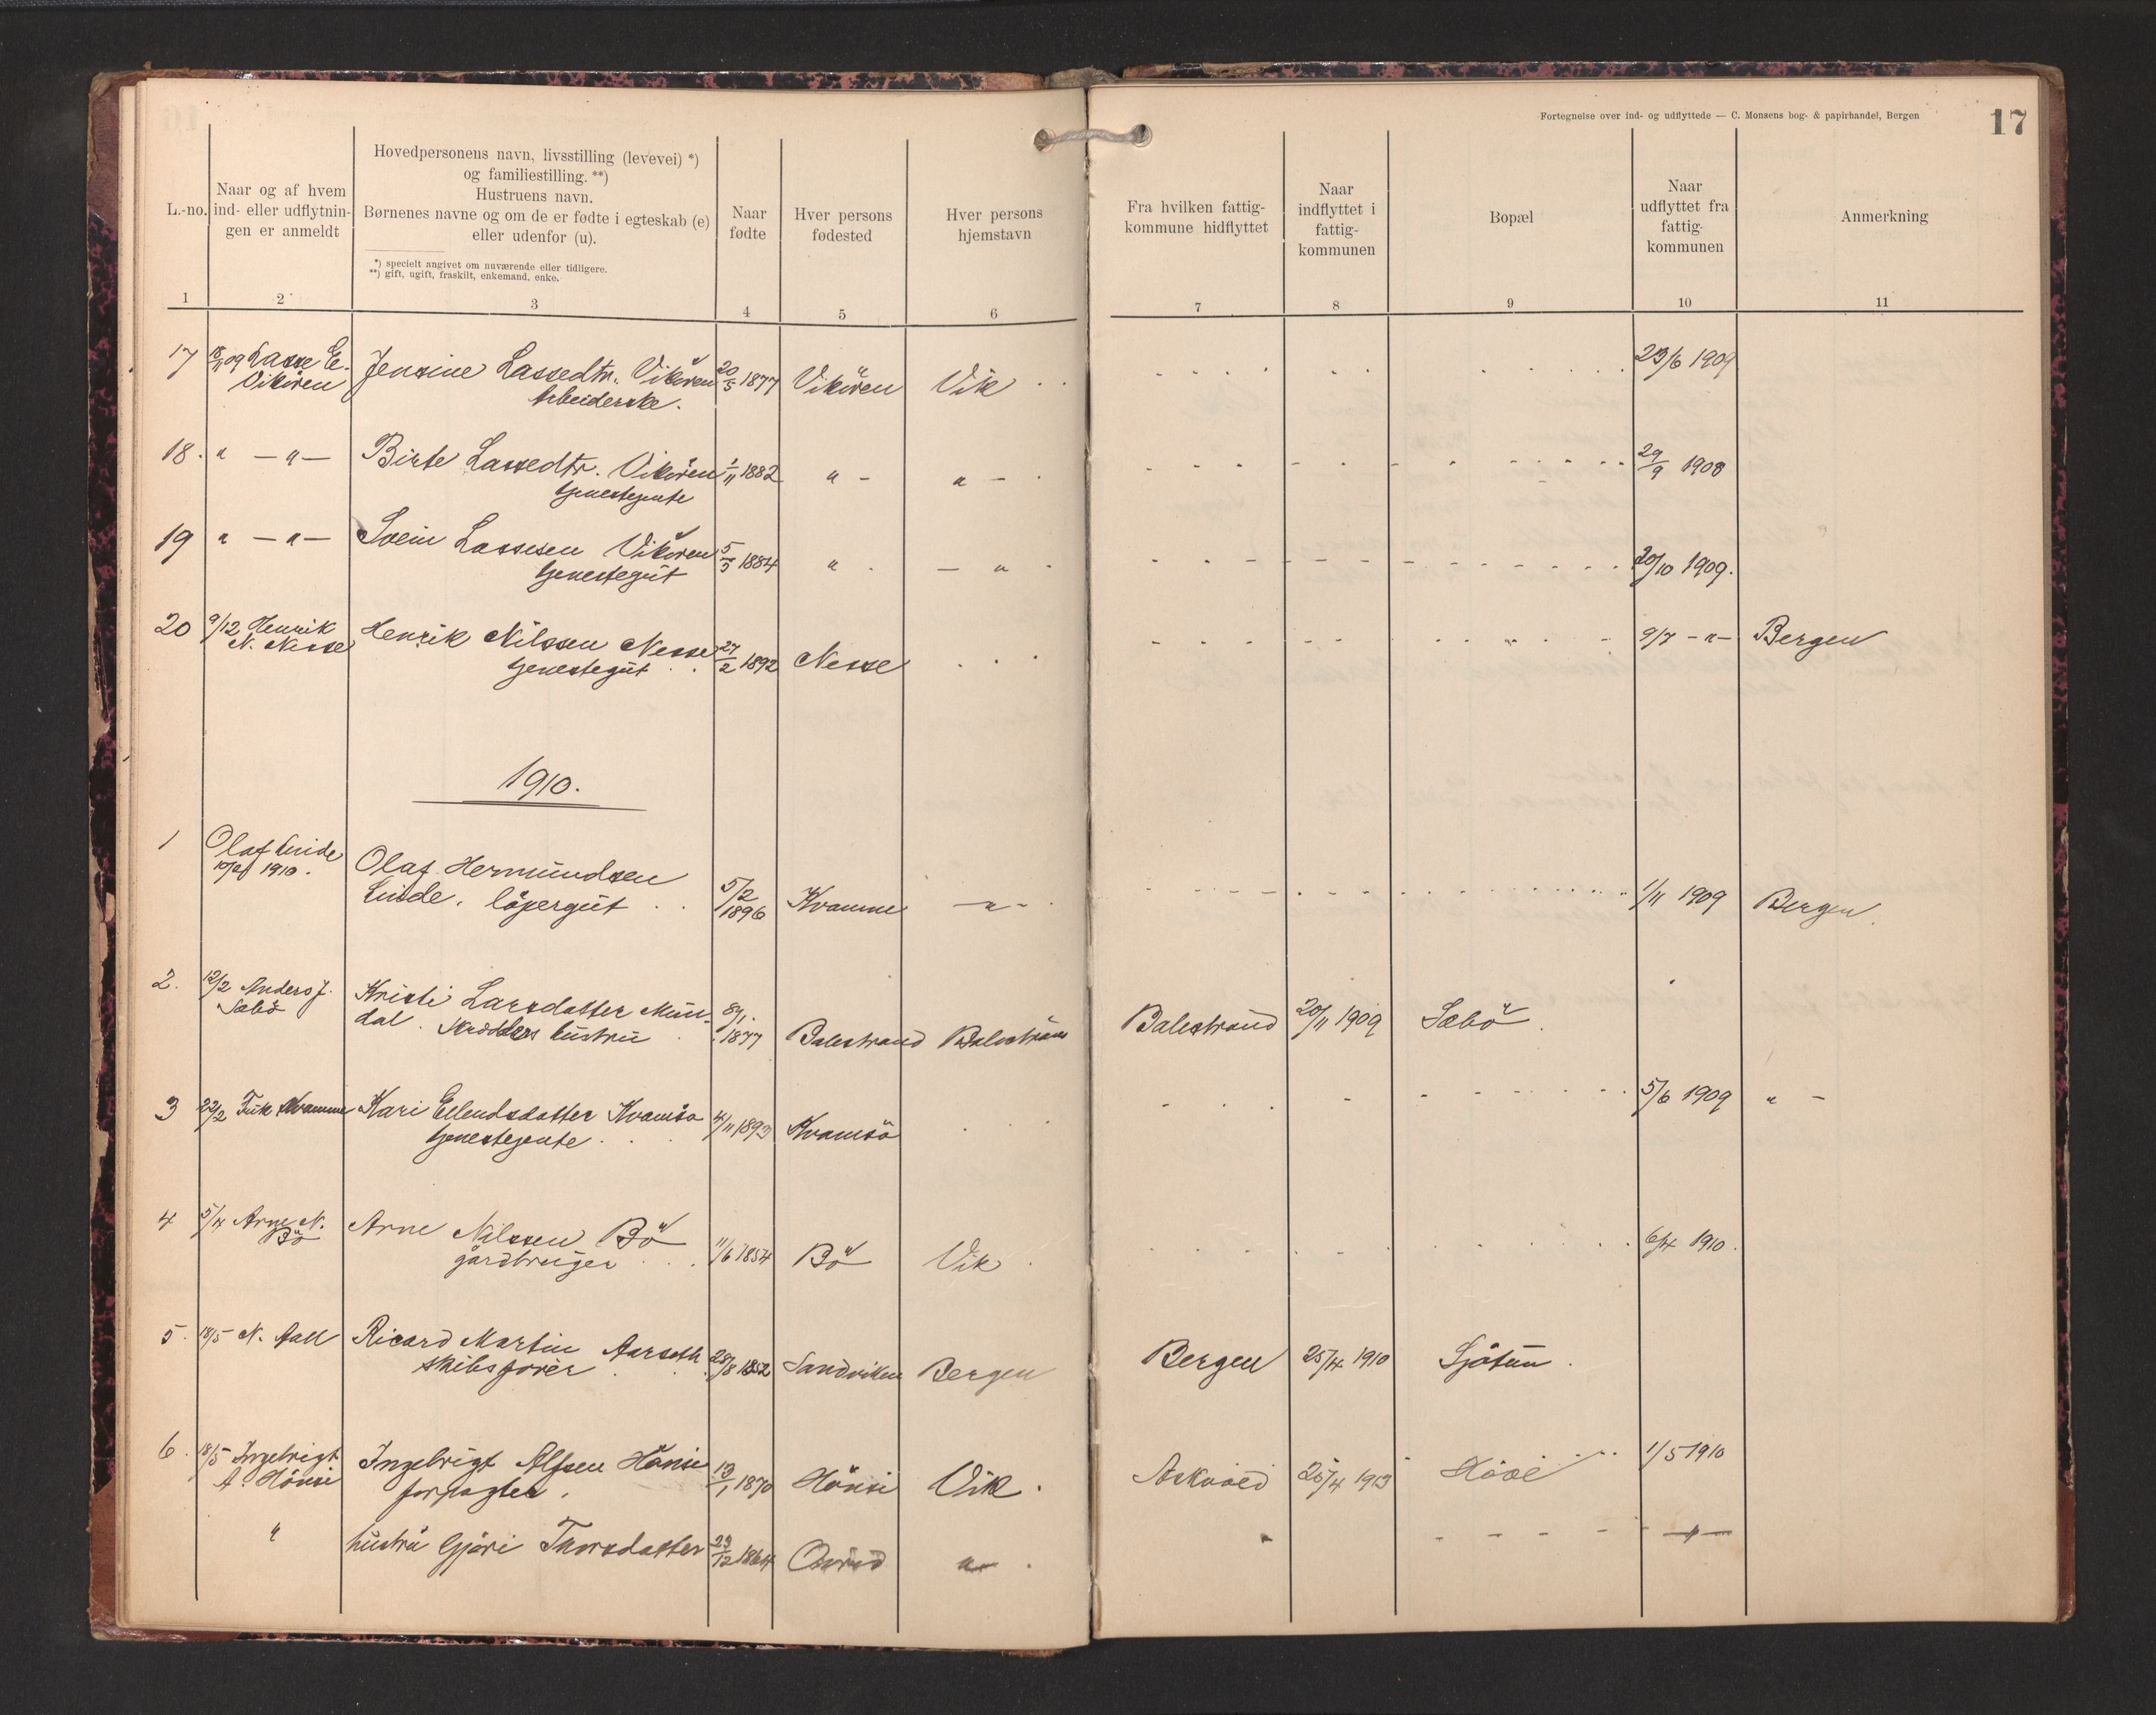 Fortegnelse over ind- og udflyttede — C. Monsens bog- & papirhandel, Bergen
17
L.-no.
Naar og af hvem
ind- eller udflytnin-
gen er anmeldt
Hovedpersonens navn, livsstilling (levevei) *)
og familiestilling. **)
Hustruens navn.
Børnenes navne og om de er fødte i egteskab (e)
eller udenfor (u).
*) specielt angivet om nuværende eller tidligere.
**) gift, ugift, fraskilt, enkemand, enke.
Naar
fødte
Hver persons
fødested
Hver persons
hjemstavn
Fra hvilken fattig-
kommune hidflyttet
Naar
indflyttet i
fattig-
kommunen
Bopæl
Naar
udflyttet fra
fattig-
kommunen
Anmerkning
1 2 3 4 5 6 7 8 9 10 11
17 18/11 09 Lasse E. Jensine Lassedtr. Vikören 20/5 1877 Vikören Vik 23/6 1909
Vikören Arbeiderske.
18. " — " — Birte Lassedtr. Vikören 1/11 1882 " - " - 29/9 1908
tjenestejente
19 " — " — Svein Lassesen Vikören 5/5 1884 " — " 20/10 1909.
tjenestegut
20 9/12 Henrik Henrik Nilssen Nesse 27/2 1892 Nesse 9/7 - " - Bergen
N. Nesse tjenestegut
1910.
1 Olaf Linde Olaf Hermundsen 5/2 1896 Kvamme — " - 1/11 1909 Bergen
10/2 1910. Linde, löpergut
2. 12/2 Anders J. Kristi Larsdatter Mun- 8/1. 1877 Balestrand Balestrand Balestrand 20/11 1909 Sæbö
Sæbö dal. Skrædders hustru
3 22/2 Fuk Kvamme Kari Erlendsdatter Kvamsö 4/11 1893 Kvamsö 5/6 1909 " -
tjenestejente
4 5/4 Arne N. Arne Nilssen Bö 11/6 1854 Bö Vik 6/4 1910.
Bö gårdbruger
5. 18/5 N. Aall Ricard Martin Aarseth 28/8 1852 Sandviken Bergen Bergen 25/4 1910 Sjötun
skibsförer
6. 18/5 Ingebrigt Ingebrigt Alfsen Hönsi 13/1 1870 Hönsi Vik Askvold 25/4 1910 1/5 1910
A. Hönsi forpagter.
" hustru Gjöri Thorsdatter 23/12 1864 " — " —